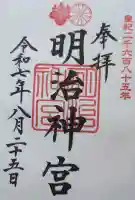 皇紀二千六百八十五年
奉拝
明治神宮
令和七年八月二十五日